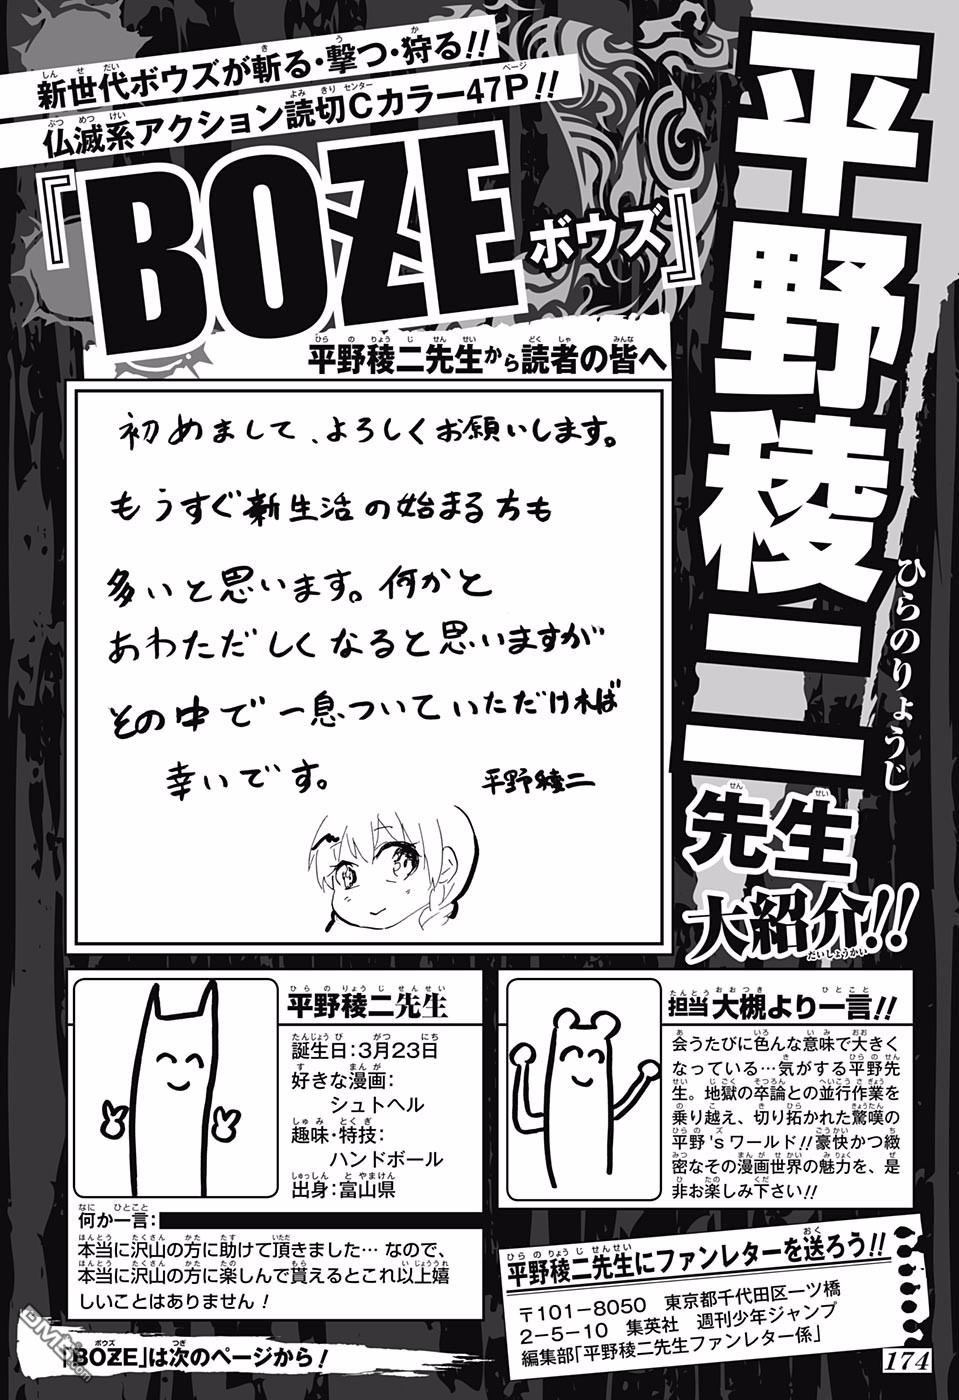 新世代ボウズが斬る・撃つ・狩る!!
仏滅系アクション読切Cカラー47P!!
『BOZE ボウズ』
平野稜二
ひらのりょうじ
先生
大紹介!!
平野稜二先生から読者の皆へ
初めまして、よろしくお願いします。
もうすぐ新生活の始まる方も
多いと思います。何かと
あわただしくなると思いますが
その中で一息ついていただければ
幸いです。 平野稜二
平野稜二先生
誕生日:3月23日
好きな漫画:
シュトヘル
趣味・特技:
ハンドボール
出身:富山県
何か一言:
本当に沢山の方に助けて頂きました… なので、
本当に沢山の方に楽しんで貰えるとこれ以上嬉
しいことはありません!
担当 大槻より一言!!
会うたびに色んな意味で大きく
なっている…気がする平野先
生。地獄の卒論との並行作業を
乗り越え、切り拓かれた驚嘆の
平野'sワールド!!豪快かつ緻
密なその漫画世界の魅力を、是
非お楽しみ下さい!!
平野稜二先生にファンレターを送ろう!!
〒101-8050 東京都千代田区一ツ橋
2-5-10 集英社 週刊少年ジャンプ
編集部「平野稜二先生ファンレター係」
「BOZE」は次のページから!
174